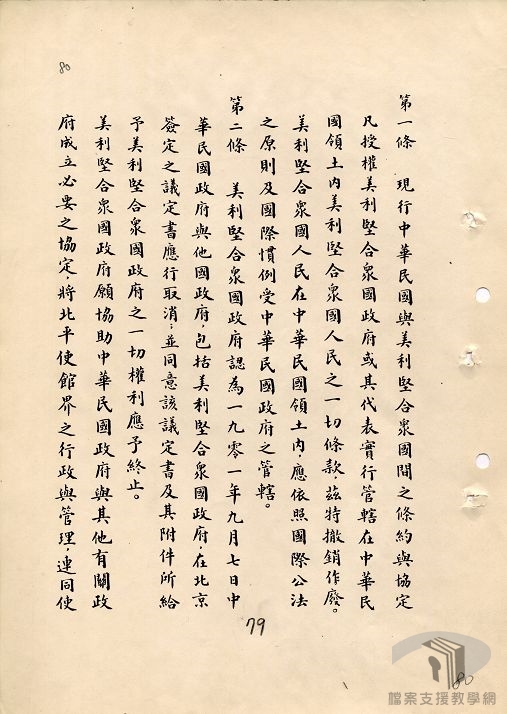 80
第一條　現行中華民國與美利堅合眾國間之條約與協定
凡授權美利堅合眾國政府或其代表實行管轄在中華民
國領土內美利堅合眾國人民之一切條款，茲特撤銷作廢。
美利堅合眾國人民在中華民國領土內，應依照國際公法
之原則及國際慣例受中華民國政府之管轄。
第二條　美利堅合眾國政府認為一九零一年九月七日中
華民國政府與他國政府，包括美利堅合眾國政府，在北京
簽定之議定書應行取消；並同意該議定書及其附件所給
予美利堅合眾國政府之一切權利應予終止。
美利堅合眾國政府願協助中華民國政府與其他有關政
府成立必要之協定，將北平使館界之行政與管理，連同使
79
80
檔案支援教學網